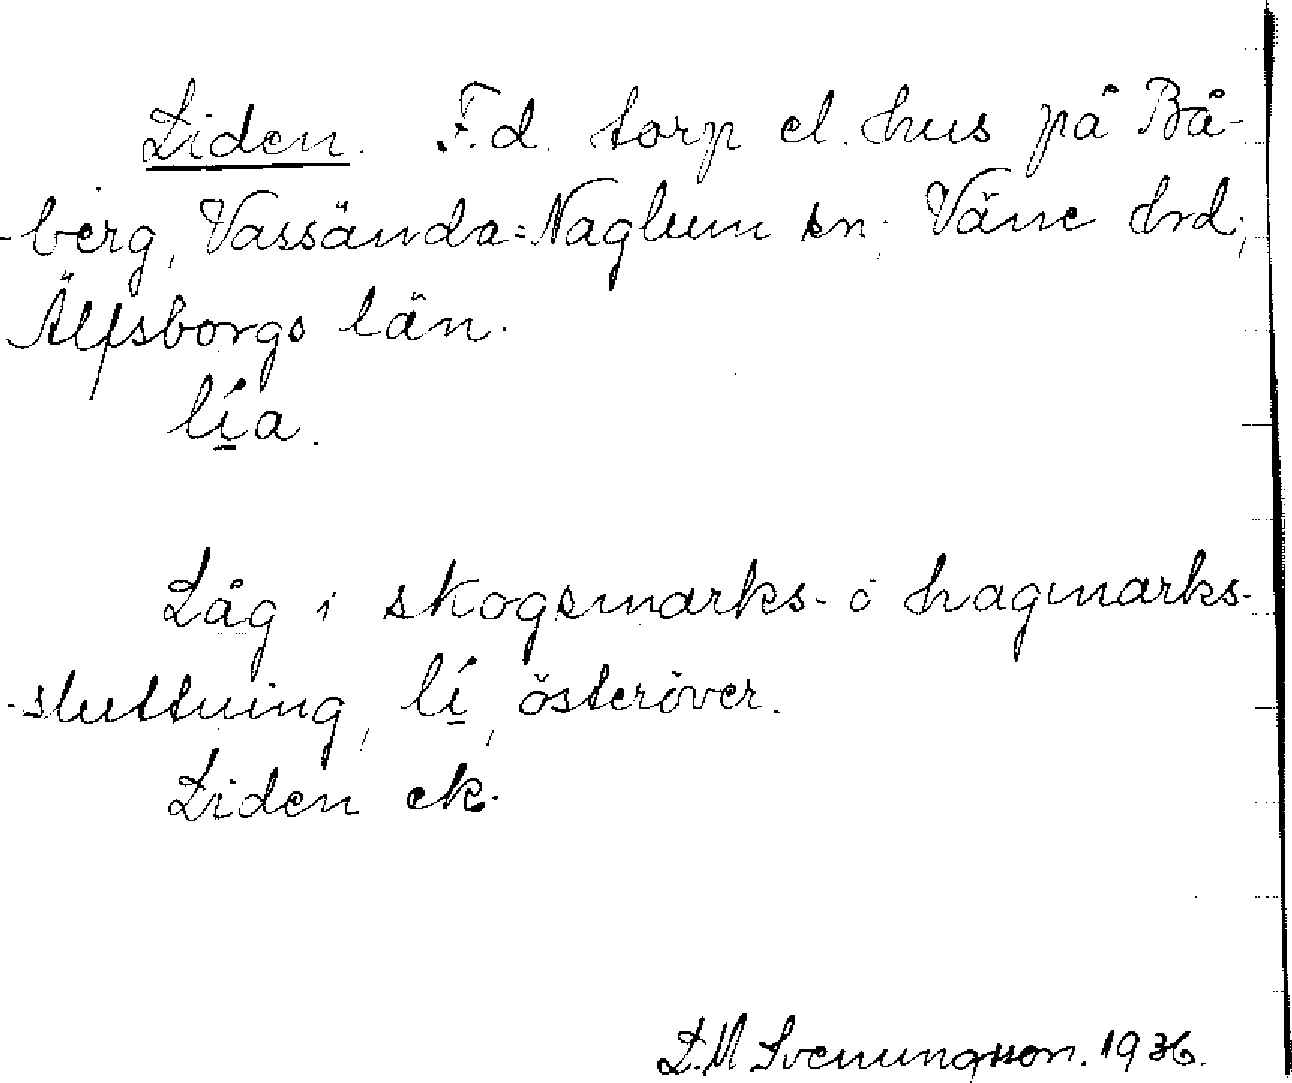 Liden. F.d. torp el. hus på Bå-
-berg, Vassända=Naglum sn, Väne hrd,
Älfsborgs län.
lí̱a.
Låg i skogsmarks- o hagmarks-
-sluttning, lí̱, österöver.
Liden ek.
L.M Svenungsson. 1936.